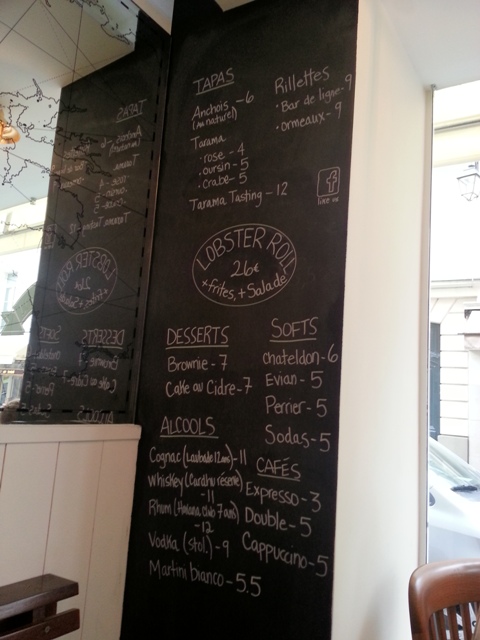 TAPAS
Anchois - 6
(au naturel)
Tarama
• rose - 4
• oursin - 5
• crabe - 5
Tarama Tasting - 12
Rillettes
• Bar de ligne - 9
• ormeaux - 9
f
like us
LOBSTER ROLL
26€
+ frites, + Salade
DESSERTS
Brownie - 7
Cake au Cidre - 7
SOFTS
chateldon - 6
Evian - 5
Perrier - 5
Sodas - 5
ALCOOLS
Cognac (Laubade 12 ans) - 11
Whiskey (Cardhu réserve)
- 11
Rhum (Havana club 7 ans)
- 12
Vodka (Stol.) - 9
Martini bianco - 5.5
CAFÉS
Expresso - 3
Double - 5
Cappuccino - 5